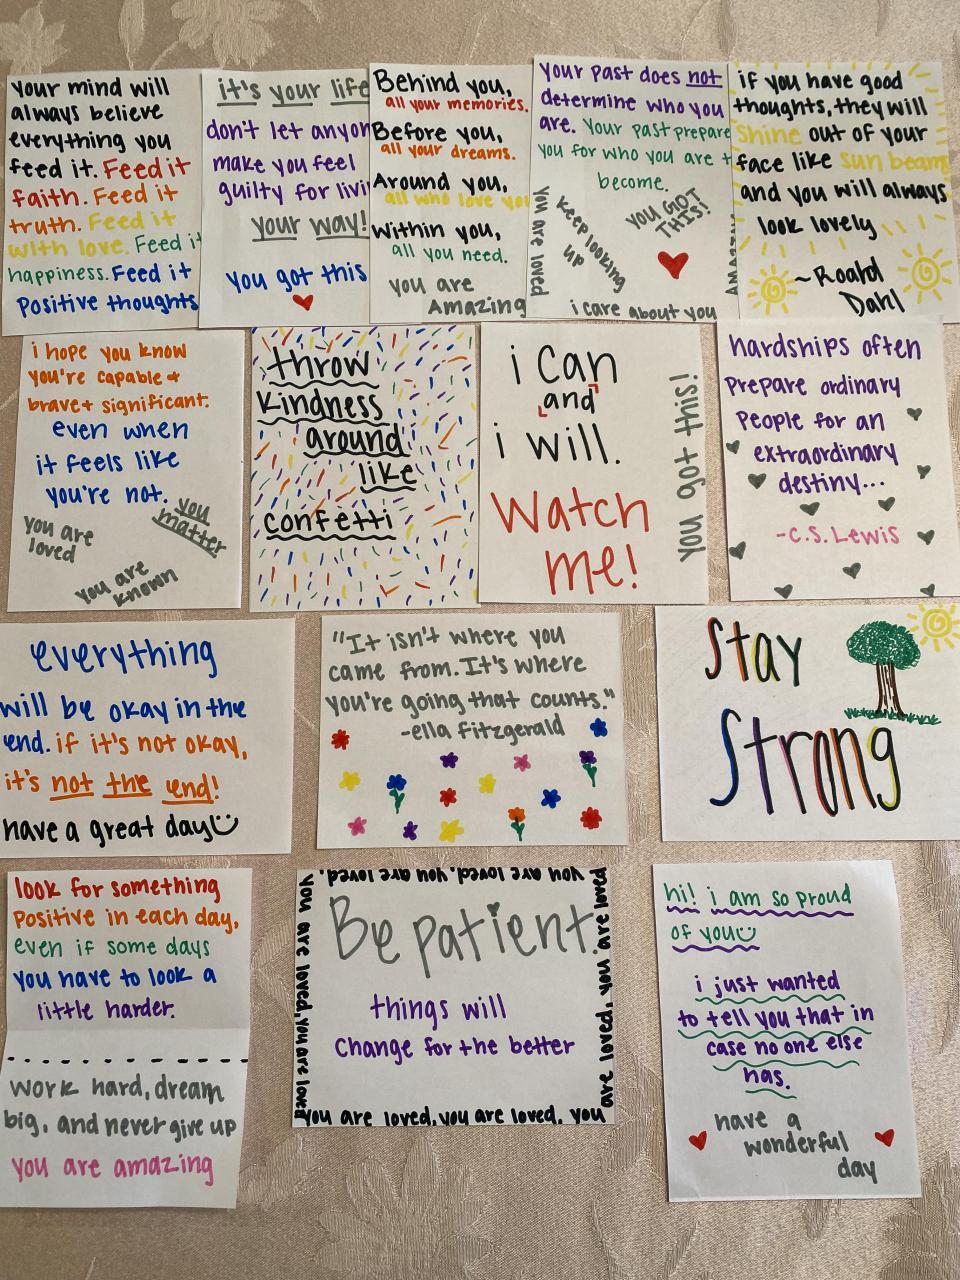 your mind will
always believe
everything you
feed it. Feed it
faith. Feed it
truth. Feed it
with love. Feed it
happiness. Feed it
Positive thoughts
it's your life
don't let anyon
make you feel
guilty for livi
your way!
you got this
Behind you,
all your memories.
Before you,
all your dreams.
Around you,
all who love you
Within you,
all you need.
you are
Amazing
your past does not
determine who you
are. Your past prepare
you for who you are t
become.
you are loved
keep looking
up
YOU GOT
THIS!
i care about you
if you have good
thoughts, they will
shine out of your
face like sun beams
and you will always
look lovely
~Roald
Dahl
i hope you know
you're capable +
brave+ significant.
even when
it feels like
you're not.
you are
loved
you
matter
you are
known
throw
kindness
around
like
confetti
i can
and
i will.
Watch
me!
you got this!
hardships often
prepare ordinary
People for an
extraordinary
destiny...
-C.S. Lewis
everything
will be okay in the
end. if it's not okay,
it's not the end!
have a great day
"It isn't where you
came from. It's where
you're going that counts."
-ella fitzgerald
Stay
Strong
look for something
Positive in each day,
even if some days
you have to look a
little harder.
work hard, dream
big, and never give up
you are amazing
you are loved, you are loved, you are loved.
you are loved, you are loved
Be patient.
things will
Change for the better
are loved, you are loved
you are loved, you are loved, you
hi! i am so proud
of you
i just wanted
to tell you that in
case no one else
has.
have a
wonderful
day